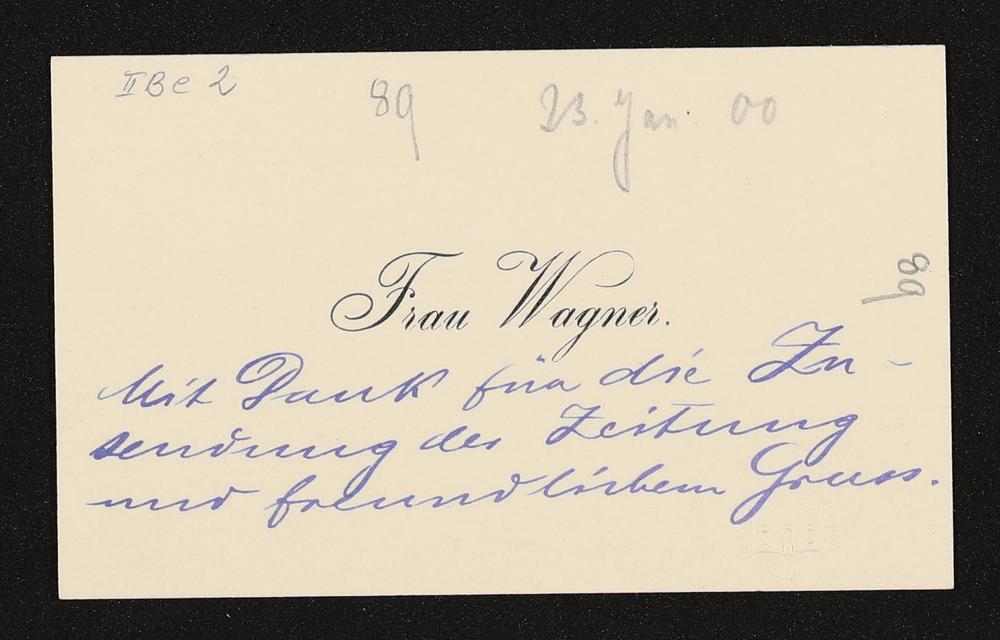 II Be 2
89
23. Jan. 00
89
Frau Wagner.
Mit Dank für die Zu-
sendung der Zeitung
und freundlichem Gruss.